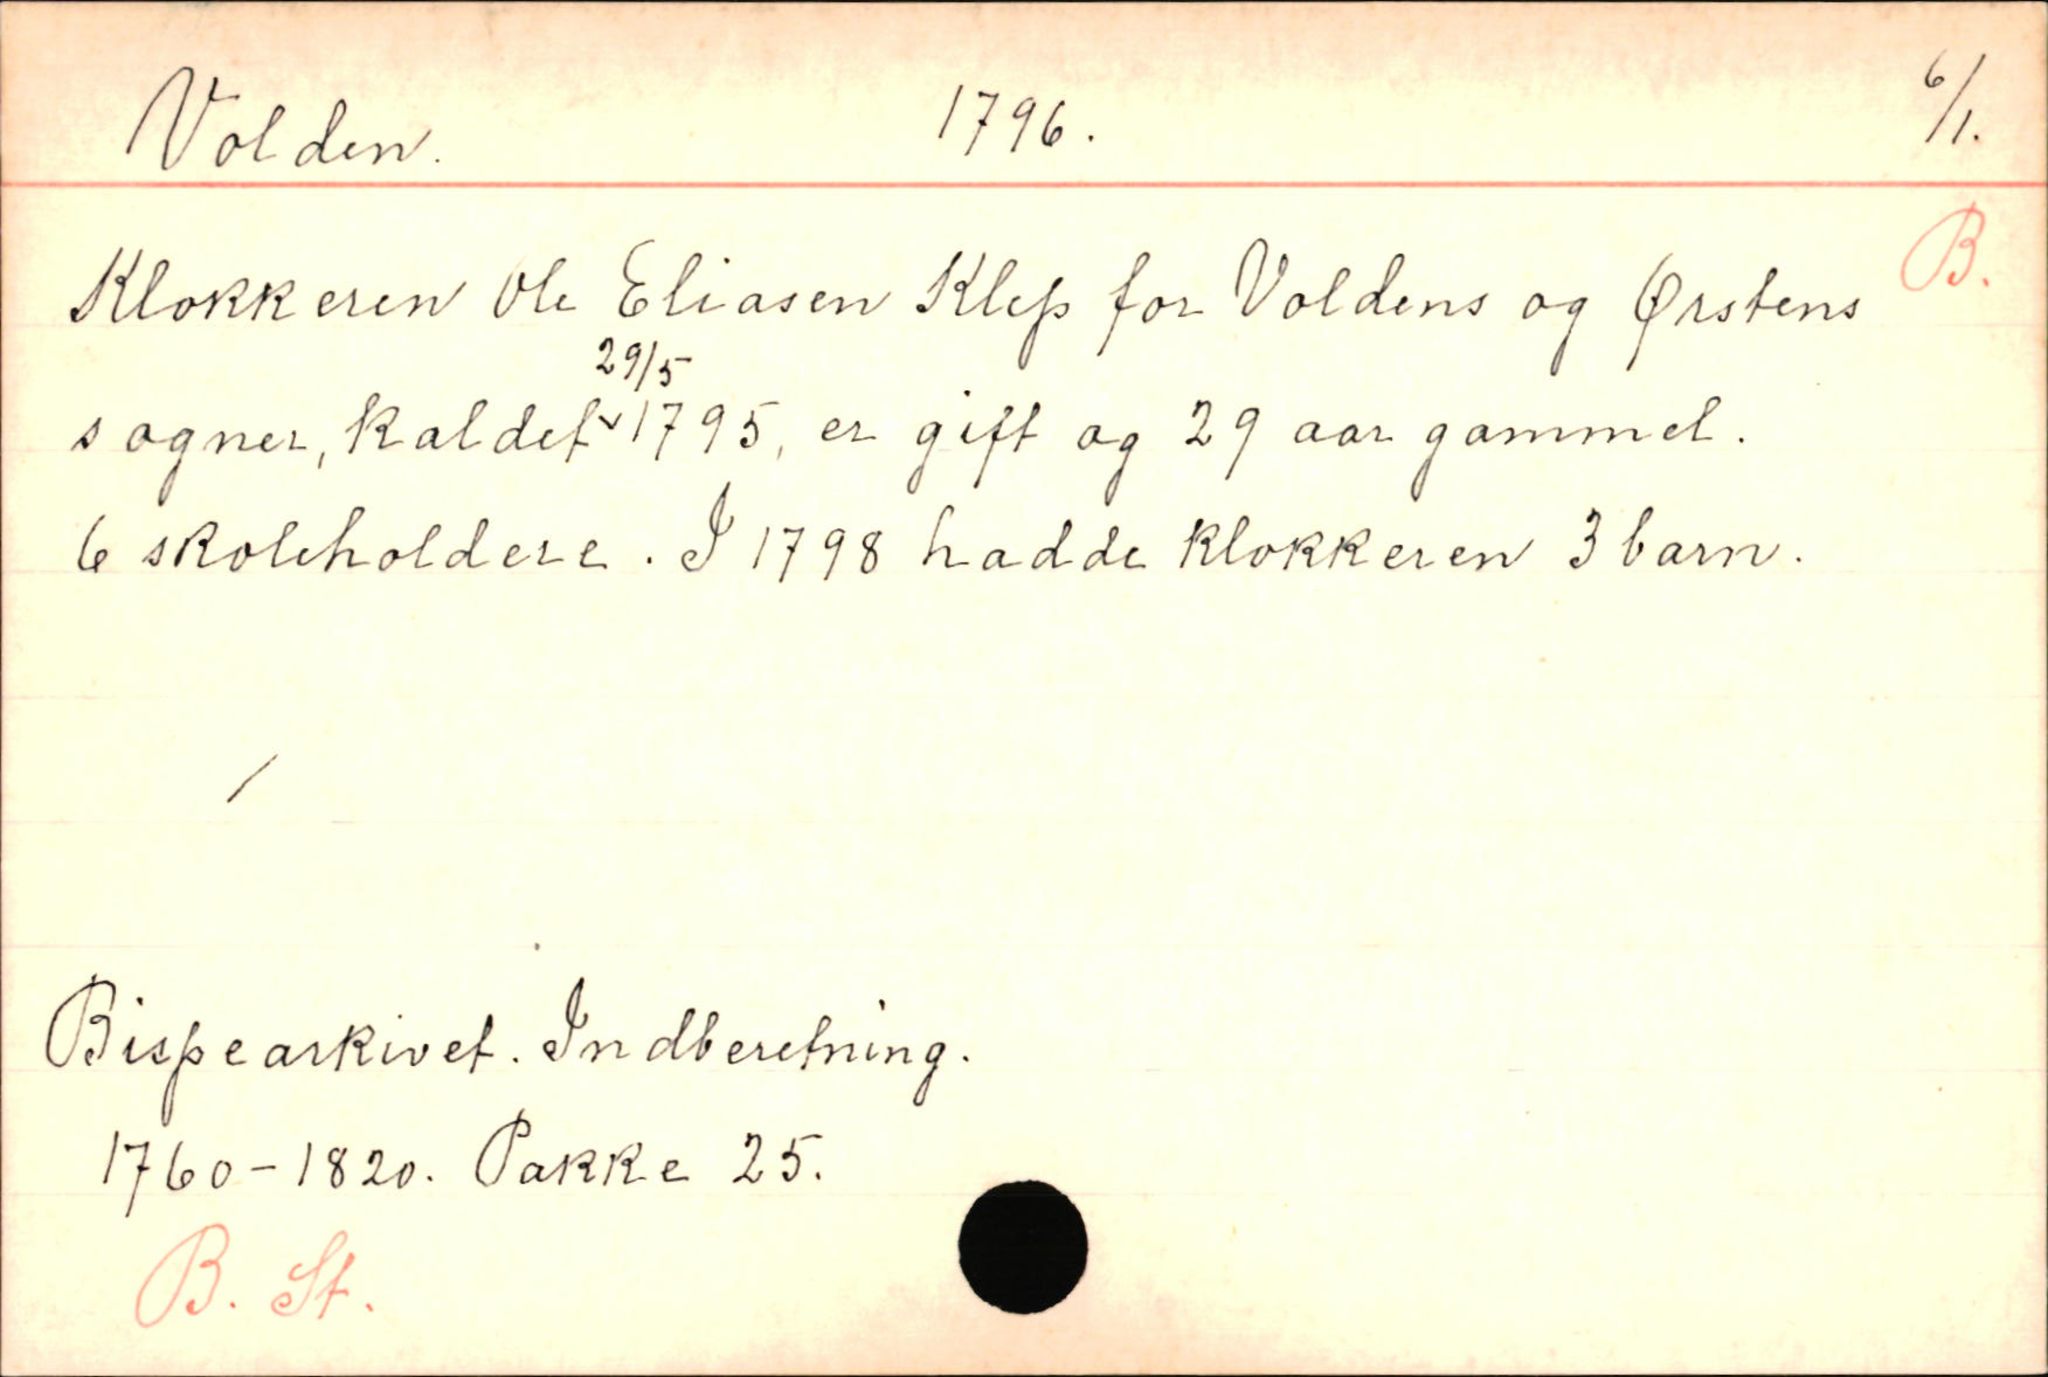 Volden. 1796. 6/1.
B.
Klokkeren Ole Eliasen Klep for Voldens og Ørstens
29/5
sogner, kaldet 1795, er gift og 29 aar gammel.
6 skoleholdere. I 1798 hadde klokkeren 3 barn.
Bispearkivet. Indberetning.
1760-1820. Pakke 25.
B. St.